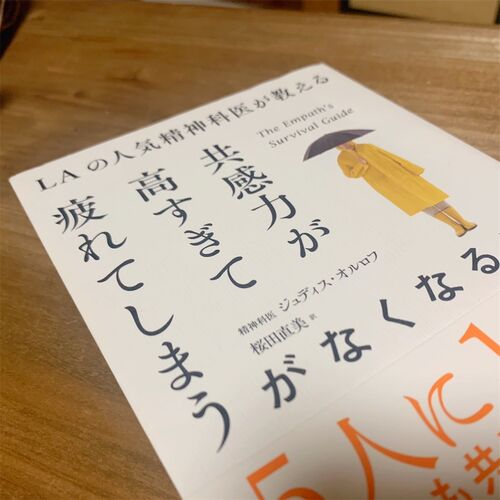 LAの人気精神科医が教える
The Empath's
Survival Guide
共感力が
高すぎて
疲れてしまう
がなくなる
精神科医 ジュディス・オルロフ
桜田直美 訳
5人に1